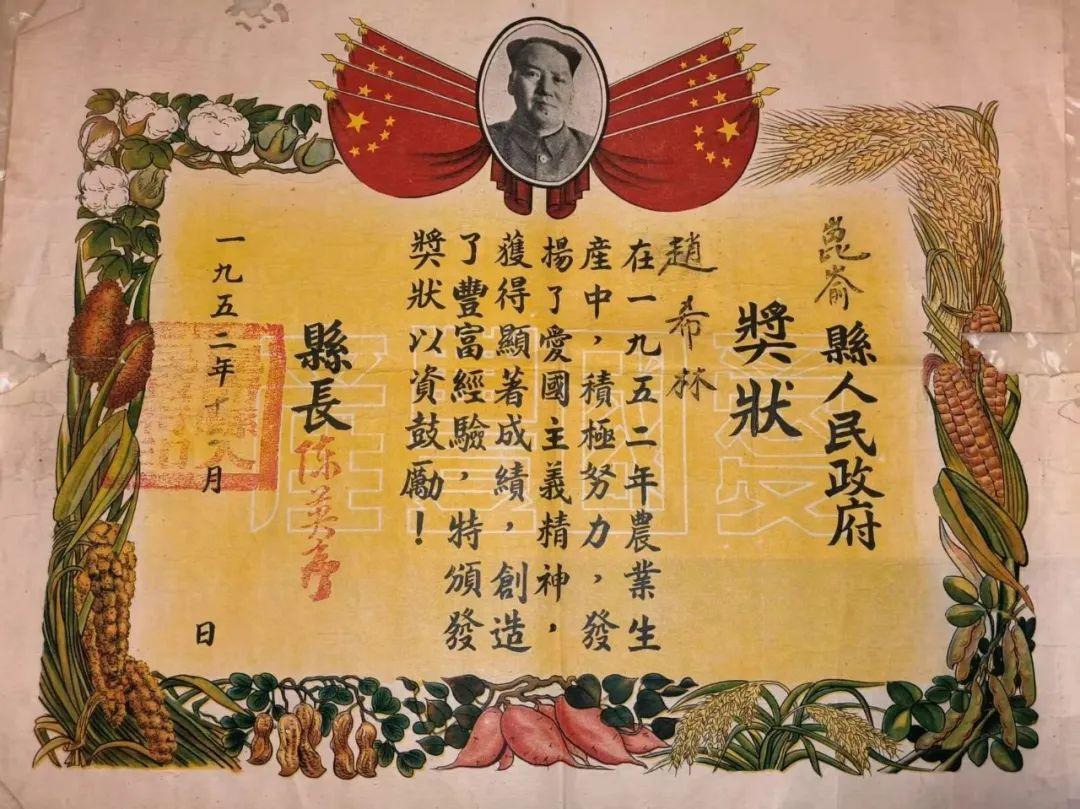 崑嵛縣人民政府
獎狀
趙希林
在一九五二年農業生
產中，積極努力，發
揚了愛國主義精神，
獲得顯著成績，創造
了豐富經驗，特頒發
獎狀以資鼓勵！
縣長 陈英
一九五二年十月 日
愛國豐產